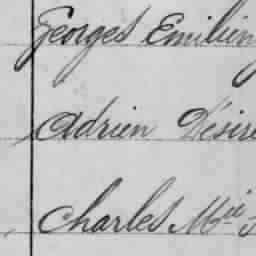 Georges Emilien
Adrien Désiré
Charles Mie